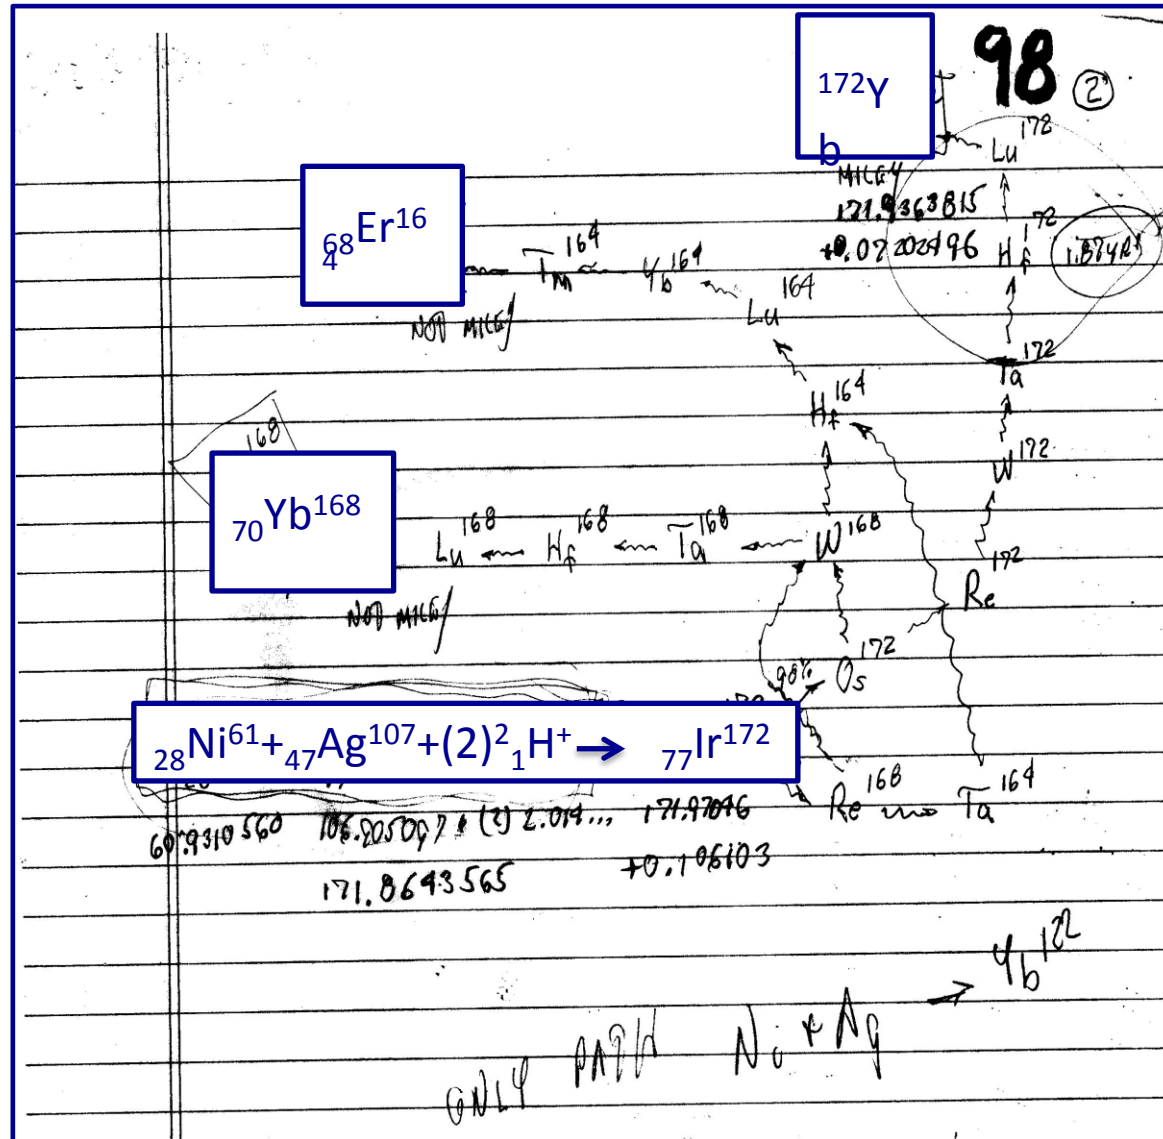 98 ②
¹⁷²Y
b
Lu¹⁷²
MILEY
171.9363815
+0.07202496
Hf¹⁷²
1.87YR
₆₈Er¹⁶
₄
Tm¹⁶⁴
Yb¹⁶⁴
Lu¹⁶⁴
NOT MILEY
Ta¹⁷²
Hf¹⁶⁴
168
W¹⁷²
₇₀Yb¹⁶⁸
Lu¹⁶⁸ Hf¹⁶⁸ Ta¹⁶⁸ W¹⁶⁸
Re¹⁷²
NOT MILEY
Os¹⁷²
98%
₂₈Ni⁶¹+₄₇Ag¹⁰⁷+(2)²₁H⁺ → ₇₇Ir¹⁷²
Re¹⁶⁸ Ta¹⁶⁴
60.9310560 (2) 2.014... 171.97046
171.8643565 +0.106103
ONLY PATH Ni + Ag → Yb¹⁷²